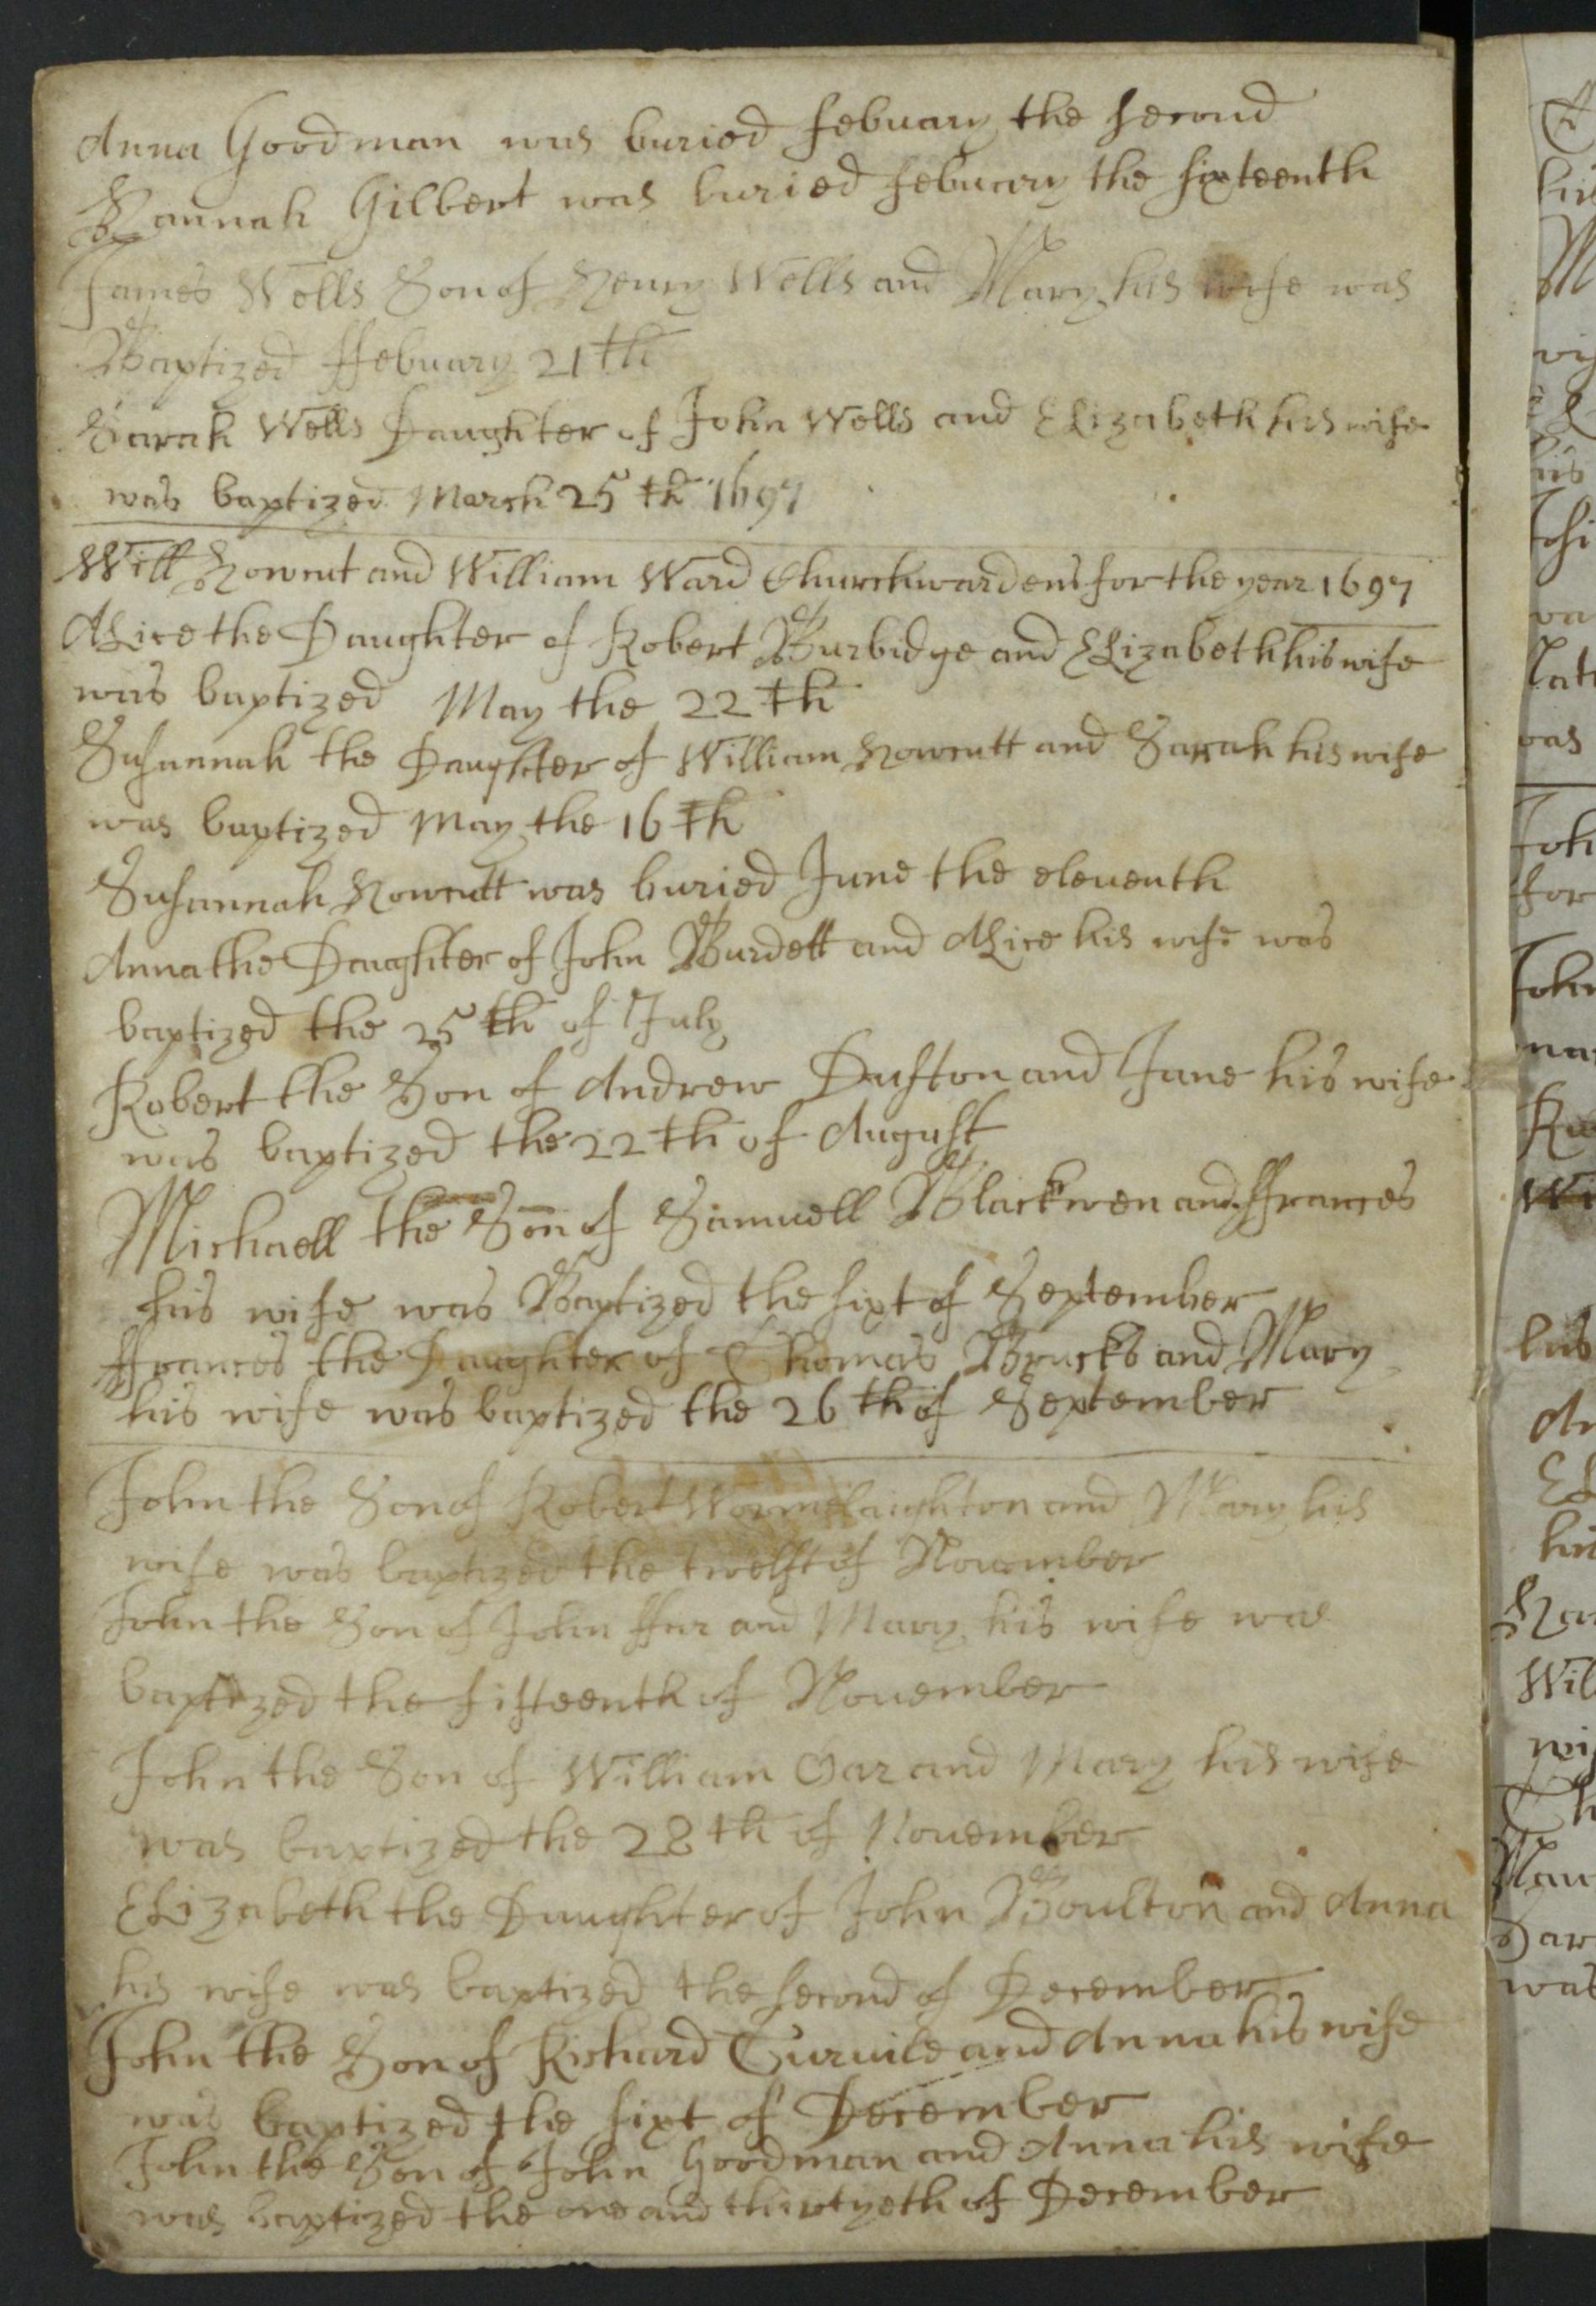 Anna Goodman was buried Febuary the second
Hannah Gilbert was buried Febuary the sixteenth
James Wells Son of Henry Wells and Mary his wife was
Baptized ffebuary 21th
Sarah Wells Daughter of John Wells and Elizabeth his wife
was baptized March 25th 1697
Will Howcut and William Ward Churchwardens for the year 1697
Alice the Daughter of Robert Burbidge and Elizabeth his wife
was baptized May the 22th
Susannah the Daughter of William Howcutt and Sarah his wife
was baptized May the 16th
Susannah Howcutt was buried June the eleventh
Anna the Daughter of John Burdett and Alice his wife was
baptized the 25th of July
Robert the Son of Andrew Dufton and Jane his wife
was baptized the 22th of August
Michaell the Son of Samuell Blackwen and ffrances
his wife was Baptized the sixt of September
ffrances the Daughter of Thomas and Mary
his wife was baptized the 26th of September
John the Son of Robert and Mary his
wife was baptized the twelft of November
John the Son of John and Mary his wife was
baptized the fifteenth of November
John the Son of William and Mary his wife
was baptized the 28th of November
Elizabeth the Daughter of John Boulton and Anna
his wife was baptized the second of December
John the Son of Richard and Anna his wife
was baptized the sixt of December
John the Son of John Goodman and Anna his wife
was baptized the one and thirtyeth of December